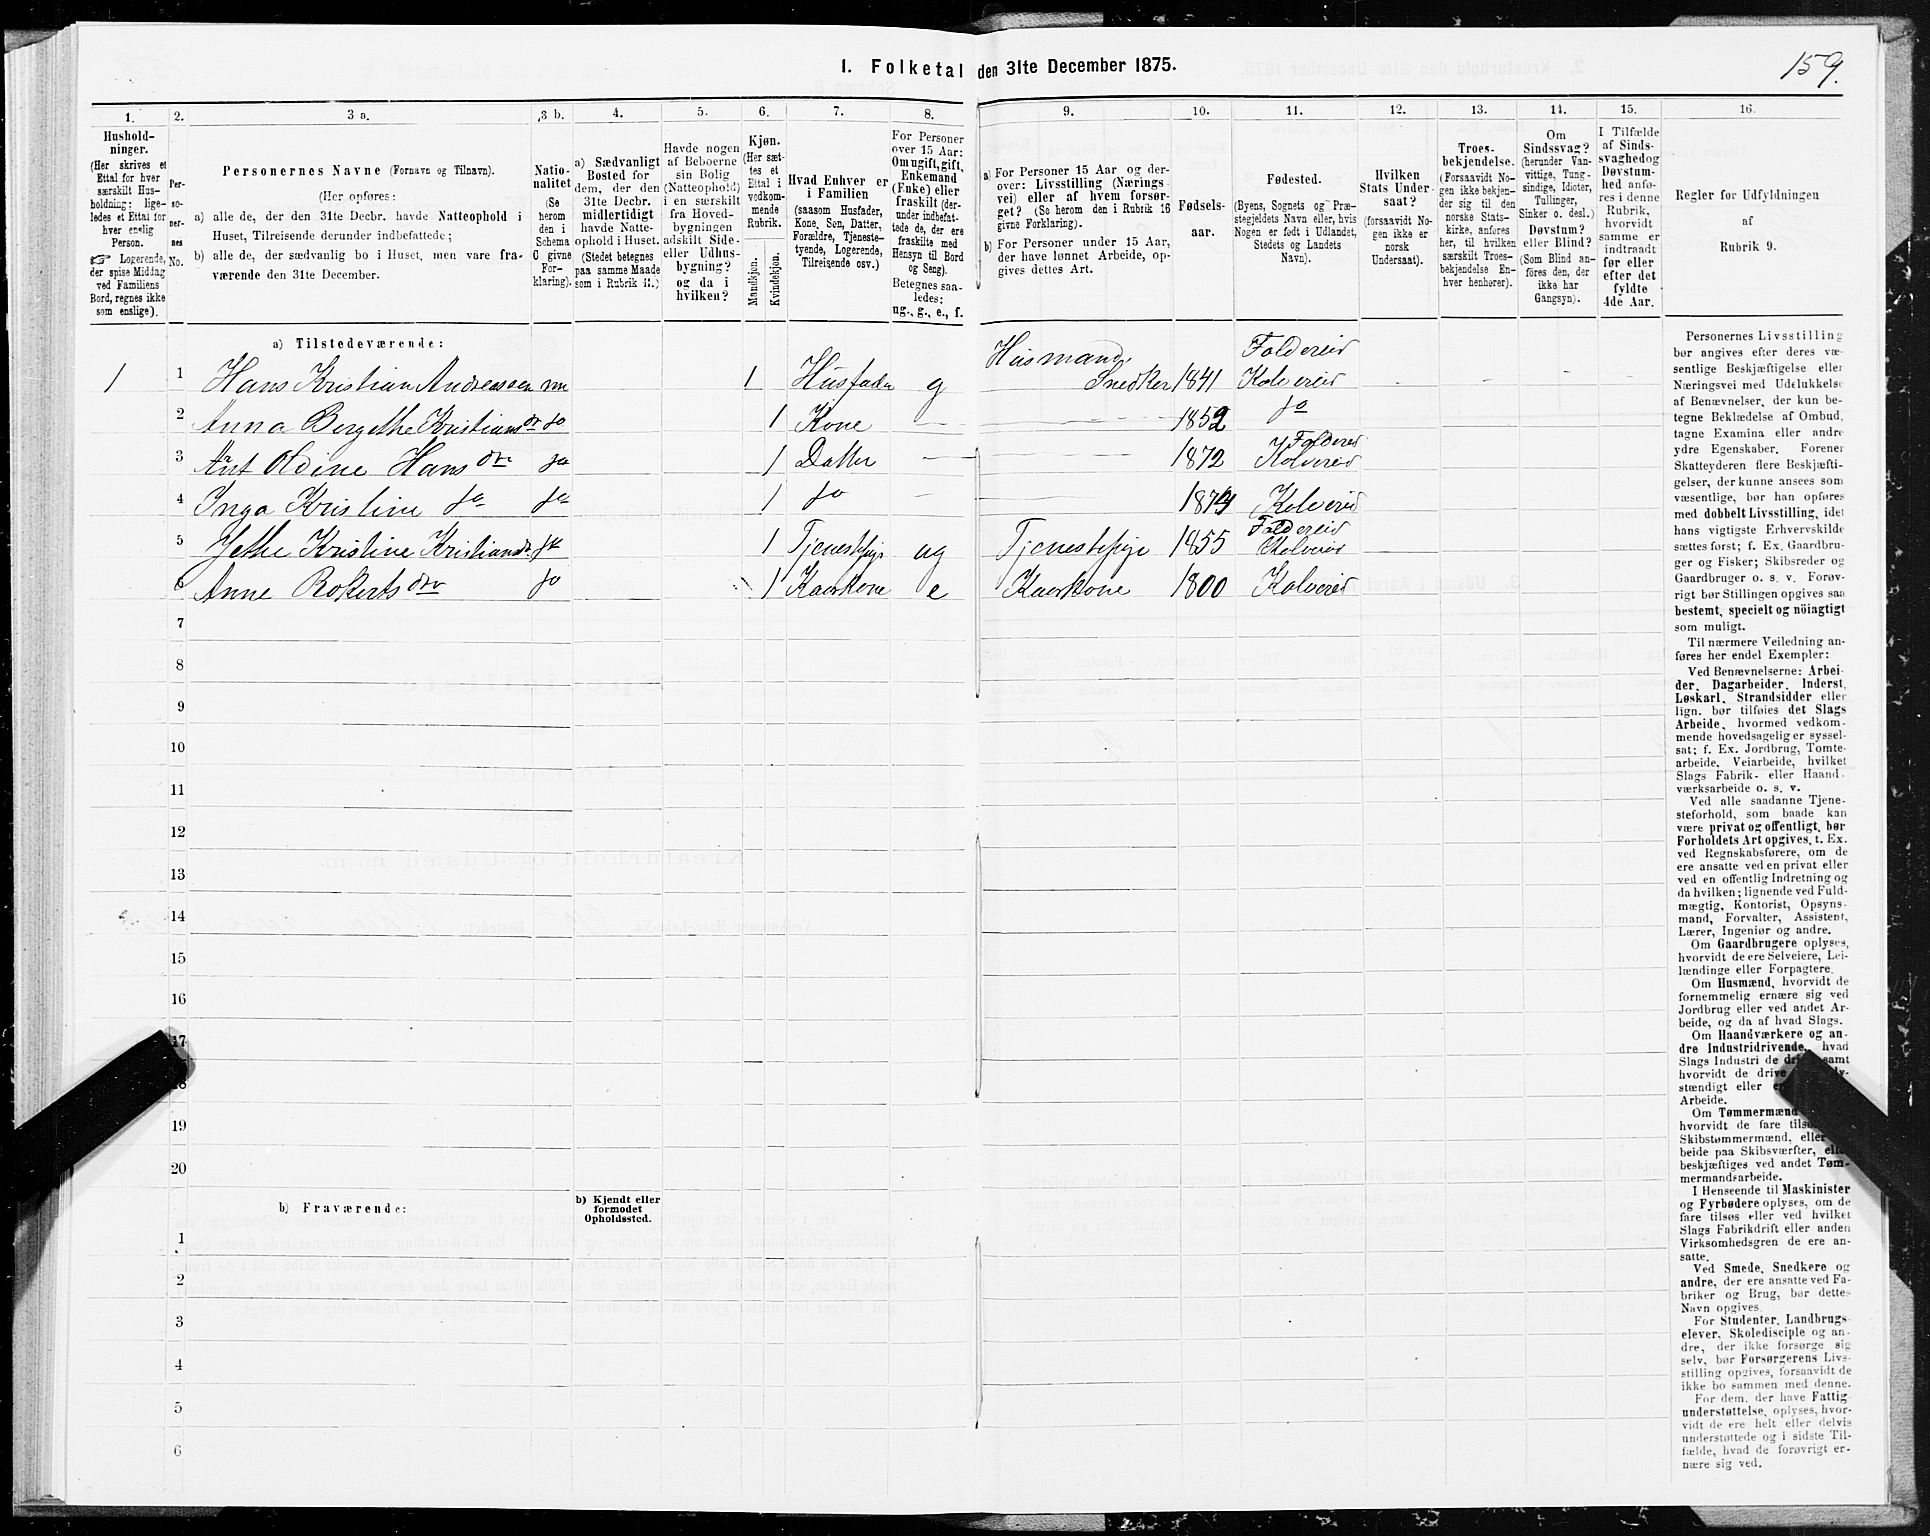 159.
1. Folketal den 31te December 1875.
1. 2. 3 a. 3 b. 4. 5. 6. 7. 8. 9. 10. 11. 12. 13. 14. 15. 16.
Hushold-
ninger.
(Her skrives et
Ettal for hver
særskilt Hus-
holdning: lige-
ledes et Ettal for
hver enslig
Person.
☞ Logerende,
der spise Middag
ved Familiens
Bord, regnes ikke
som enslige).
Per-
so-
ner-
nes
No.
Personernes Navne (Fornavn og Tilnavn).
(Her opføres:
a) alle de, der den 31te Decbr. havde Natteophold i
Huset, Tilreisende derunder indbefattede;
b) alle de, der sædvanlig bo i Huset, men vare fra-
værende den 31te December.
Natio-
nalitet
(Se
herom
den i
Schema
C givne
For-
klaring).
a) Sædvanligt
Bosted for
dem, der den
31te Decbr.
midlertidigt
havde Natte-
ophold i Huset.
(Stedet betegnes
paa samme Maade
som i Rubrik 11.)
Havde nogen
af Beboerne
sin Bolig
(Natteophold)
i en særskilt
fra Hoved-
bygningen
adskilt Side-
eller Udhus-
bygning?
og da i
hvilken?
Kjøn.
(Her sæt-
tes et
Ettal i
vedkom-
mende
Rubrik.
Mandkjøn.
Kvindekjøn.
Hvad Enhver er
i Familien
(saasom Husfader,
Kone, Søn, Datter,
Forældre, Tjeneste-
tyende, Logerende,
Tilreisende osv.)
For Personer
over 15 Aar:
Om ugift, gift,
Enkemand
(Enke) eller
fraskilt (der-
under indbefat-
tede de, der ere
fraskilte med
Hensyn til Bord
og Seng).
Betegnes saa-
ledes:
ug., g., e., f.
a) For Personer 15 Aar og der-
over: Livsstilling (Nærings-
vei) eller af hvem forsør-
get? (Se herom den i Rubrik 16
givne Forklaring).
b) For Personer under 15 Aar,
der have lønnet Arbeide, op-
gives dettes Art.
Fødsels-
aar.
Fødested.
(Byens, Sognets og Præ-
stegjeldets Navn eller, hvis
Nogen er født i Udlandet,
Stedets og Landets
Navn).
Hvilken
Stats Under-
saat?
(forsaavidt No-
gen ikke er
norsk
Undersaat).
Troes-
bekjendelse.
(Forsaavidt No-
gen ikke bekjen-
der sig til den
norske Stats-
kirke, anføres
her, til hvilken
særskilt Troes-
bekjendelse En-
hver henhører).
Om
Sindssvag?
(herunder Van-
vittige, Tung-
sindige, Idioter,
Tullinger,
Sinker o. desl.)
Døvstum?
eller Blind?
(Som Blind an-
føres den, der
ikke har
Gangsyn).
I Tilfælde
af Sinds-
svaghed og
Døvstum-
hed anfø-
res i denne
Rubrik,
hvorvidt
samme er
indtraadt
før eller
efter det
fyldte
4de Aar.
Regler for Udfyldningen
af
Rubrik 9.
a) Tilstedeværende:
1 1 Hans Kristian Andreassen nn 1 Husfader g Husmand, Snedker 1841 Foldereid Kolvereid
2 Anna Bergethe Kristiansdr do 1 Kone 1852 do
3 Ant Oldine Hansdtr do 1 Datter 1872 Foldereid Kolvereid
4 Inga Kristine do do 1 do 1874 Kolvereid
5 Jethe Kristine Kristiansdr do 1 Tjenestepige ug Tjenestepige 1855 Foldereid Kolvereid
6 Anne Rokertsdtr do 1 Kaarkone e Kaarkone 1800 Kolvereid
7
8
9
10
11
12
13
14
15
16
17
18
19
20
b) Fraværende:
b) Kjendt eller
formodet
Opholdssted.
1
2
3
4
5
6
Personernes Livsstilling
bør angives efter deres væ-
sentlige Beskjæftigelse eller
Næringsvei med Udelukkelse
af Benævnelser, der kun be-
tegne Beklædelse af Ombud,
tagne Examina eller andre
ydre Egenskaber. Forener
Skatteyderen flere Beskjæfti-
gelser, der kunne ansees som
væsentlige, bør han opføres
med dobbelt Livsstilling, idet
hans vigtigste Erhvervskilde
sættes først; f. Ex. Gaardbru-
ger og Fisker; Skibsreder og
Gaardbruger o. s. v. Forøv-
rigt bør Stillingen opgives saa
bestemt, specielt og nöiagtigt
som muligt.
Til nærmere Veiledning an-
føres her endel Exempler:
Ved Benævnelserne: Arbei-
der, Dagarbeider, Inderst,
Løskarl, Strandsidder eller
lign. bør tilføies det Slags
Arbeide, hvormed vedkom-
mende hovedsagelig er syssel-
sat; f. Ex. Jordbrug, Tomte-
arbeide, Veiarbeide, hvilket
Slags Fabrik- eller Haand-
værksarbeide o. s. v.
Ved alle saadanne Tjene-
steforhold, som baade kan
være privat og offentligt, bør
Forholdets Art opgives, t. Ex.
ved Regnskabsførere, om de
ere ansatte ved en privat eller
ved en offentlig Indretning og
da hvilken; lignende ved Fuld-
mægtig, Kontorist, Opsyns-
mand, Forvalter, Assistent,
Lærer, Ingeniør og andre.
Om Gaardbrugere oplyses,
hvorvidt de ere Selveiere, Lei-
lændinge eller Forpagtere.
Om Husmænd, hvorvidt de
fornemmelig ernære sig ved
Jordbrug eller ved andet Ar-
beide, og da af hvad Slags.
Om Haandværkere og an-
dre Industridrivende, hvad
Slags Industri de samt
hvorvidt de
stændigt eller
Arbeide.
Om Tømmermænd
hvorvidt de fare
Skibstømmermænd, eller
beide paa Skibsværfter,
beskjæftiges ved andet Tøm-
mermandsarbeide.
I Henseende til Maskinister
og Fyrbødere oplyses, om de
fare tilsøs eller ved hvilket
Slags Fabrikdrift eller anden
Virksomhedsgren de ere an-
satte.
Ved Smede, Snedkere og
andre, der ere ansatte ved Fa-
briker og Brug, bør dettes
Navn opgives.
For Studenter, Landbrugs-
elever, Skoledisciple og an-
dre, der ikke forsørge sig
selv, bør Forsørgerens Livs-
stilling opgives, forsaavidt de
ikke bo sammen med denne.
For dem, der have Fattig-
understøttelse, oplyses, hvor-
vidt de ere helt eller delvis
understøttede og i sidste Til-
fælde, hvad de forøvrigt er-
nære sig ved.